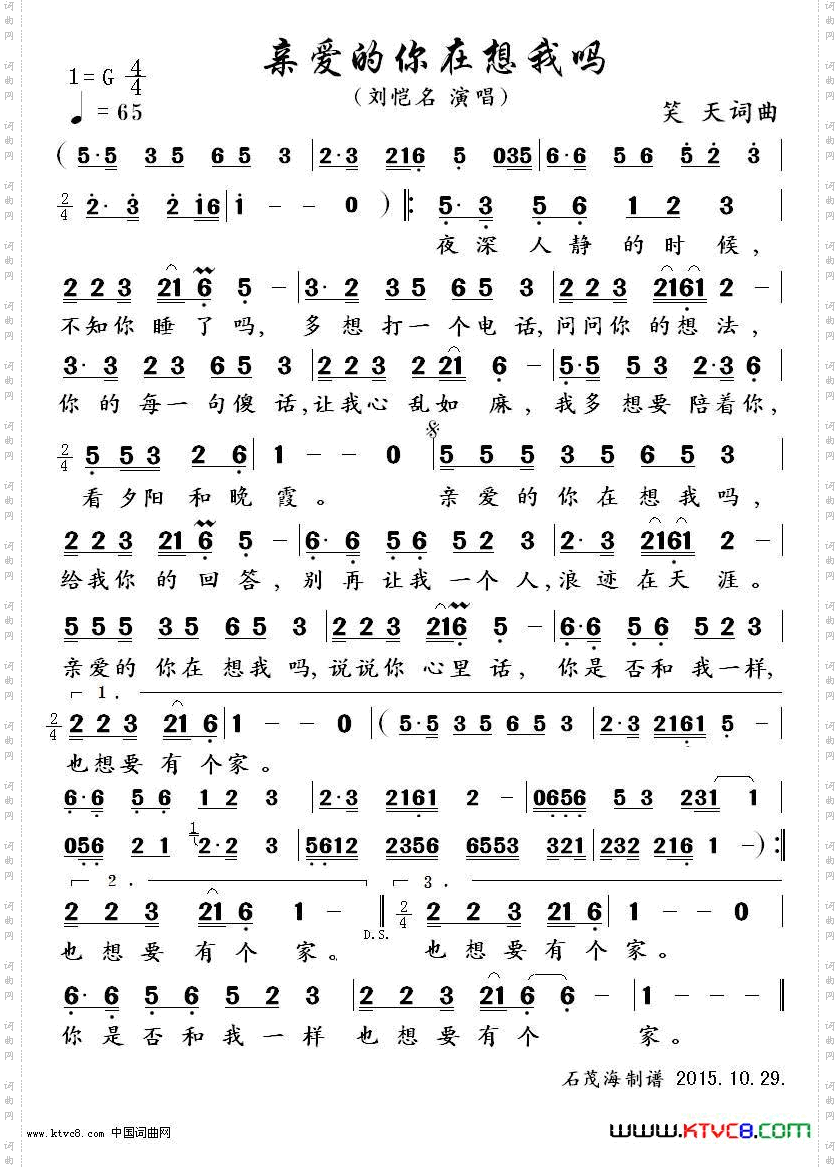 亲爱的你在想我吗
1=G 4/4
♩=65
(刘恺名 演唱)
笑 天词曲
( 5·5 35 65 3 | 2·3 216 5 035 | 6·6 56 52 3 |
2/4 2·3 216 | 1 - - 0 ) ‖: 5·3 56 12 3 |
夜深人静的时候,
223 216 5 - | 3·2 35 65 3 | 223 2161 2 -
不知你睡了吗,多想打一个电话,问问你的想法,
3·3 23 65 3 | 223 221 6 - | 5·5 53 2·3 6
你的每一句傻话,让我心乱如麻,我多想要陪着你,
2/4 553 26 | 1 - - 0 | 555 35 65 3
看夕阳和晚霞。 亲爱的你在想我吗,
223 216 5 - | 6·6 56 52 3 | 2·3 2161 2 -
给我你的回答,别再让我一个人,浪迹在天涯。
555 35 65 3 | 223 216 5 - | 6·6 56 52 3
亲爱的你在想我吗,说说你心里话,你是否和我一样,
1.
2/4 223 216 | 1 - - 0 | ( 5·5 35 65 3 | 2·3 2161 5 -
也想要有个家。
6·6 56 12 3 | 2·3 2161 2 - | 0656 53 231 1
056 21 1 2·2 3 | 5612 2356 6553 321 | 232 216 1 - ) :‖
2. 3.
223 216 1 - ‖ 2/4 223 216 | 1 - - 0
D.S.
也想要有个家。 也想要有个家。
6·6 56 52 3 | 223 216 6 - | 1 - - -
你是否和我一样也想要有个 家。
石茂海制谱 2015.10.29.
www.ktvc8.com 中国词曲网
www.KTVC8.com
词曲网